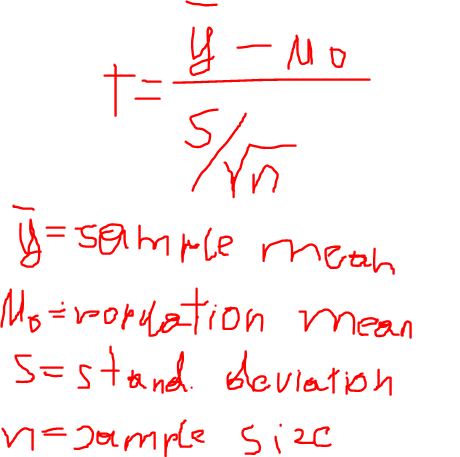 t = (ȳ - μ₀) / (s/√n)
ȳ = sample mean
μ₀ = population mean
s = stand. deviation
n = sample size